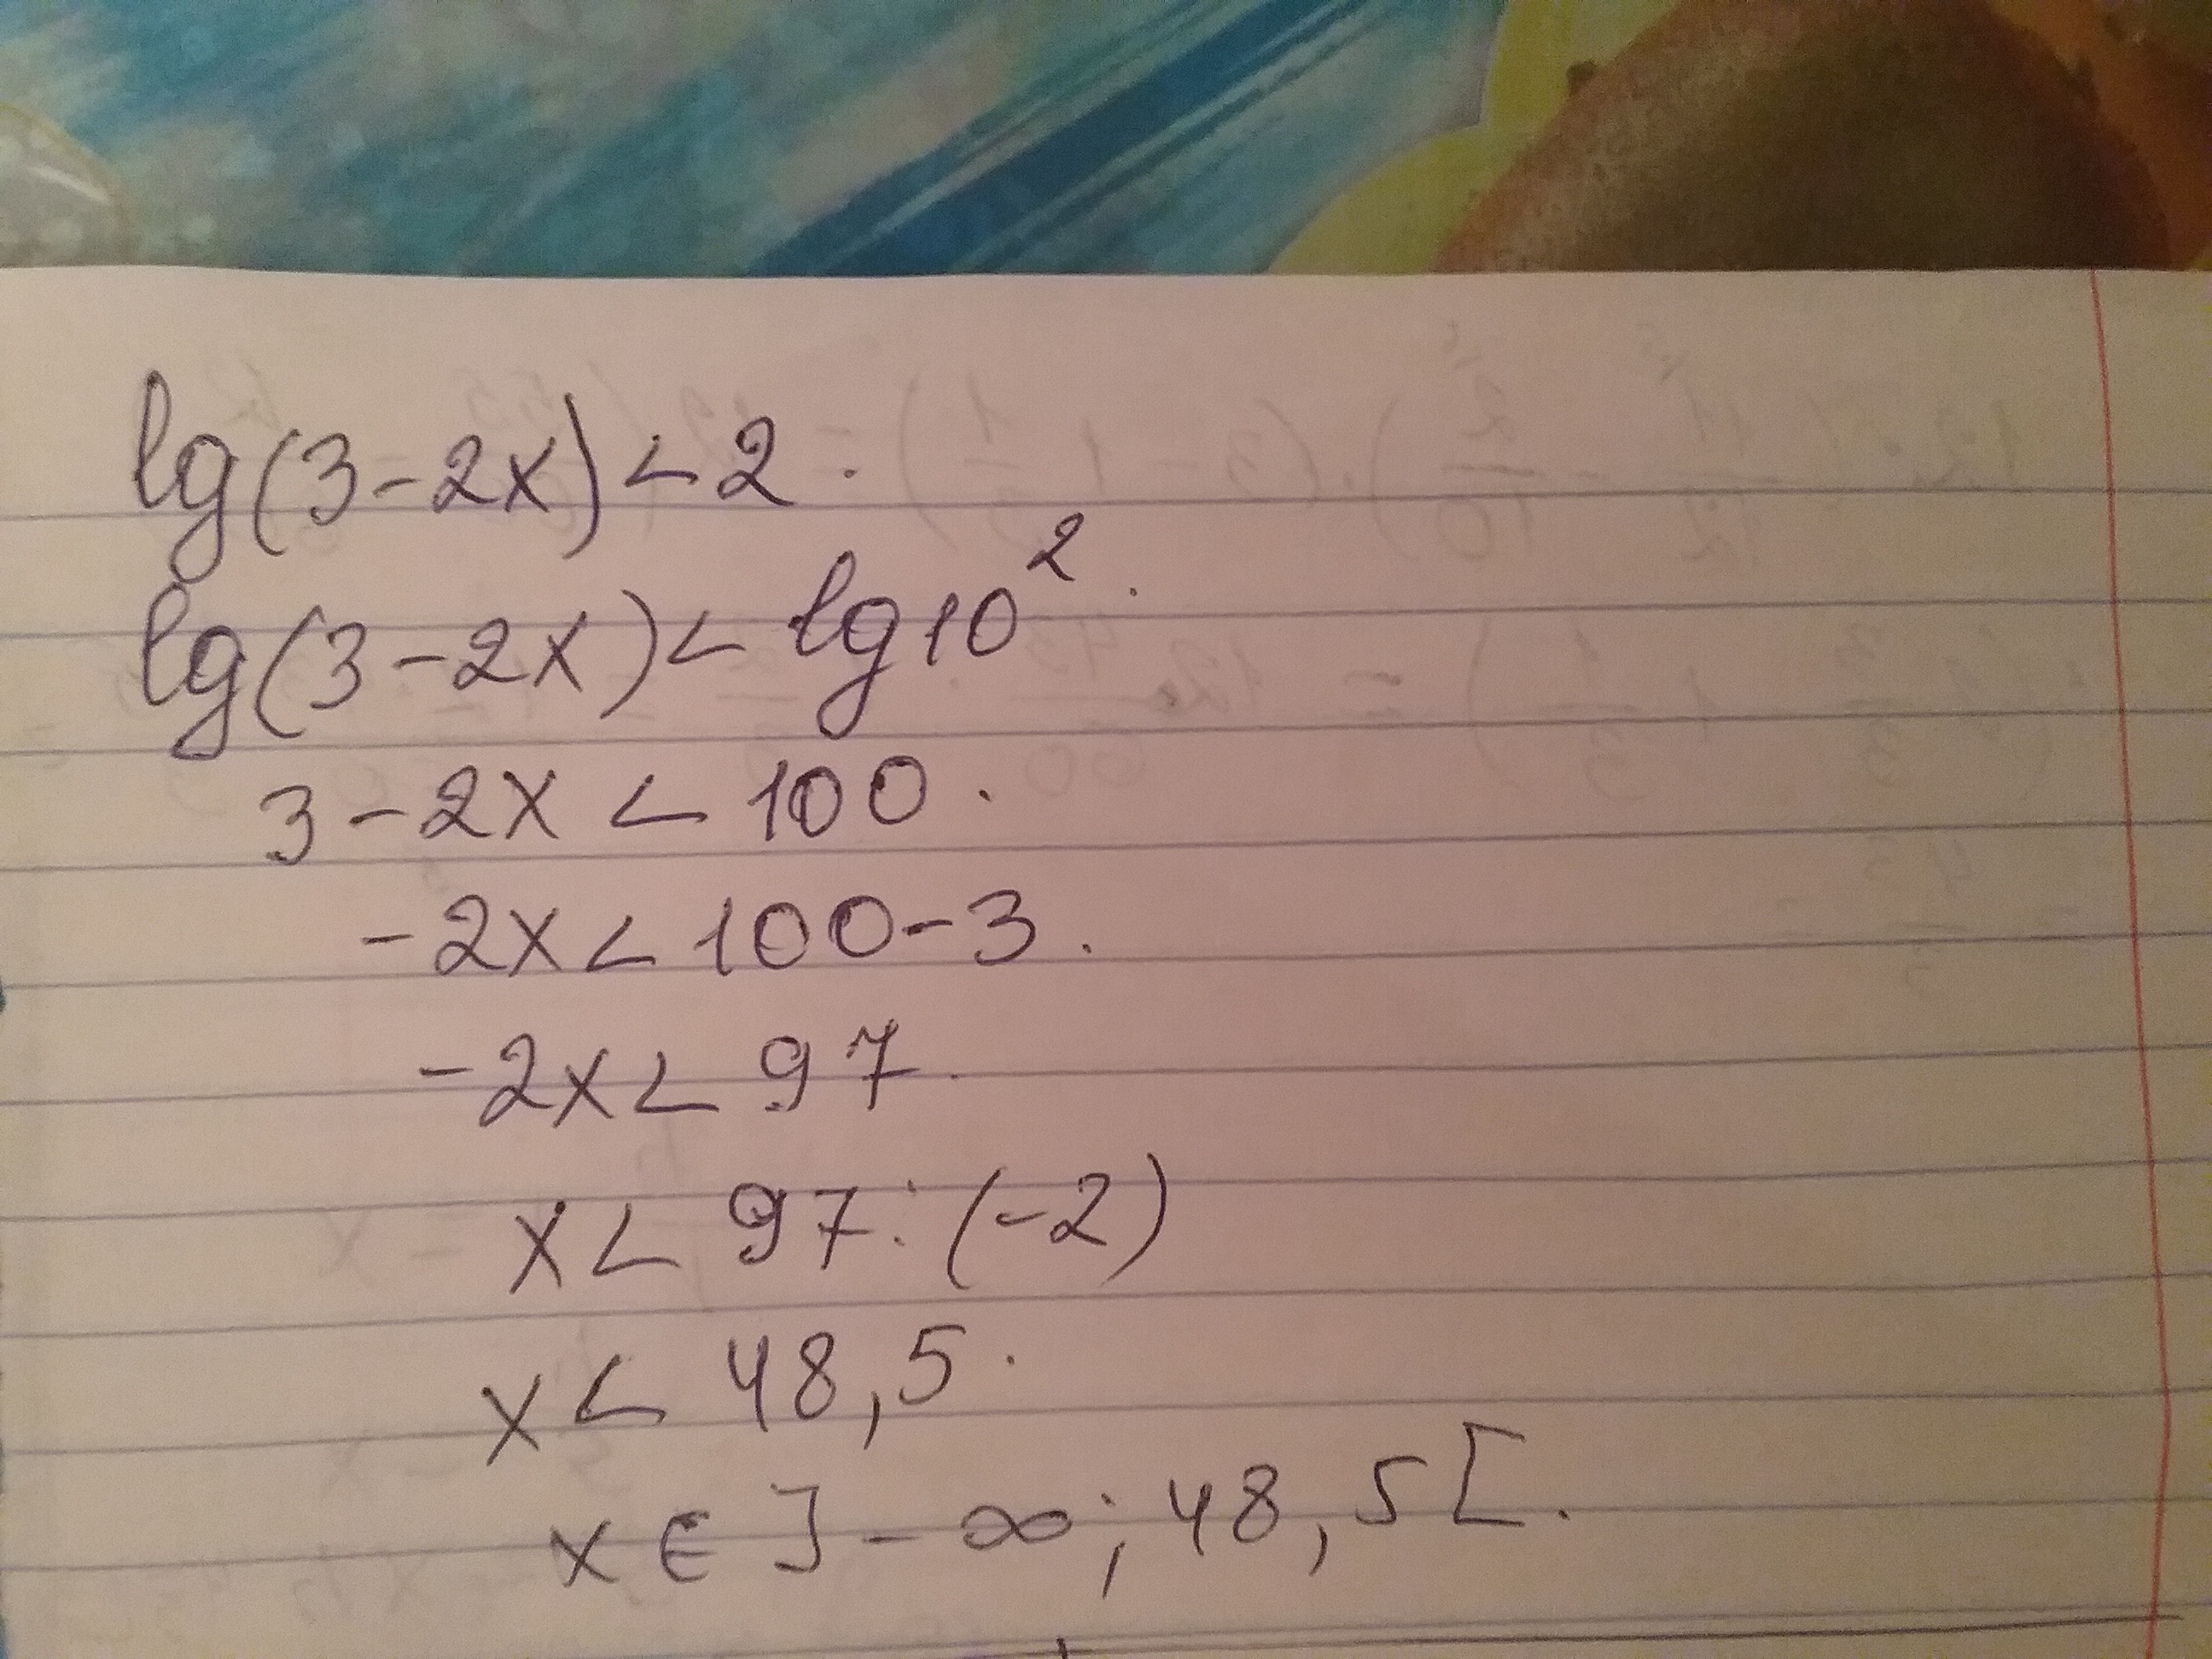 lg(3-2x)<2.
lg(3-2x)<lg10².
3-2x<100.
-2x<100-3.
-2x<97.
x<97:(-2)
x<48,5.
x∈]-∞;48,5[.